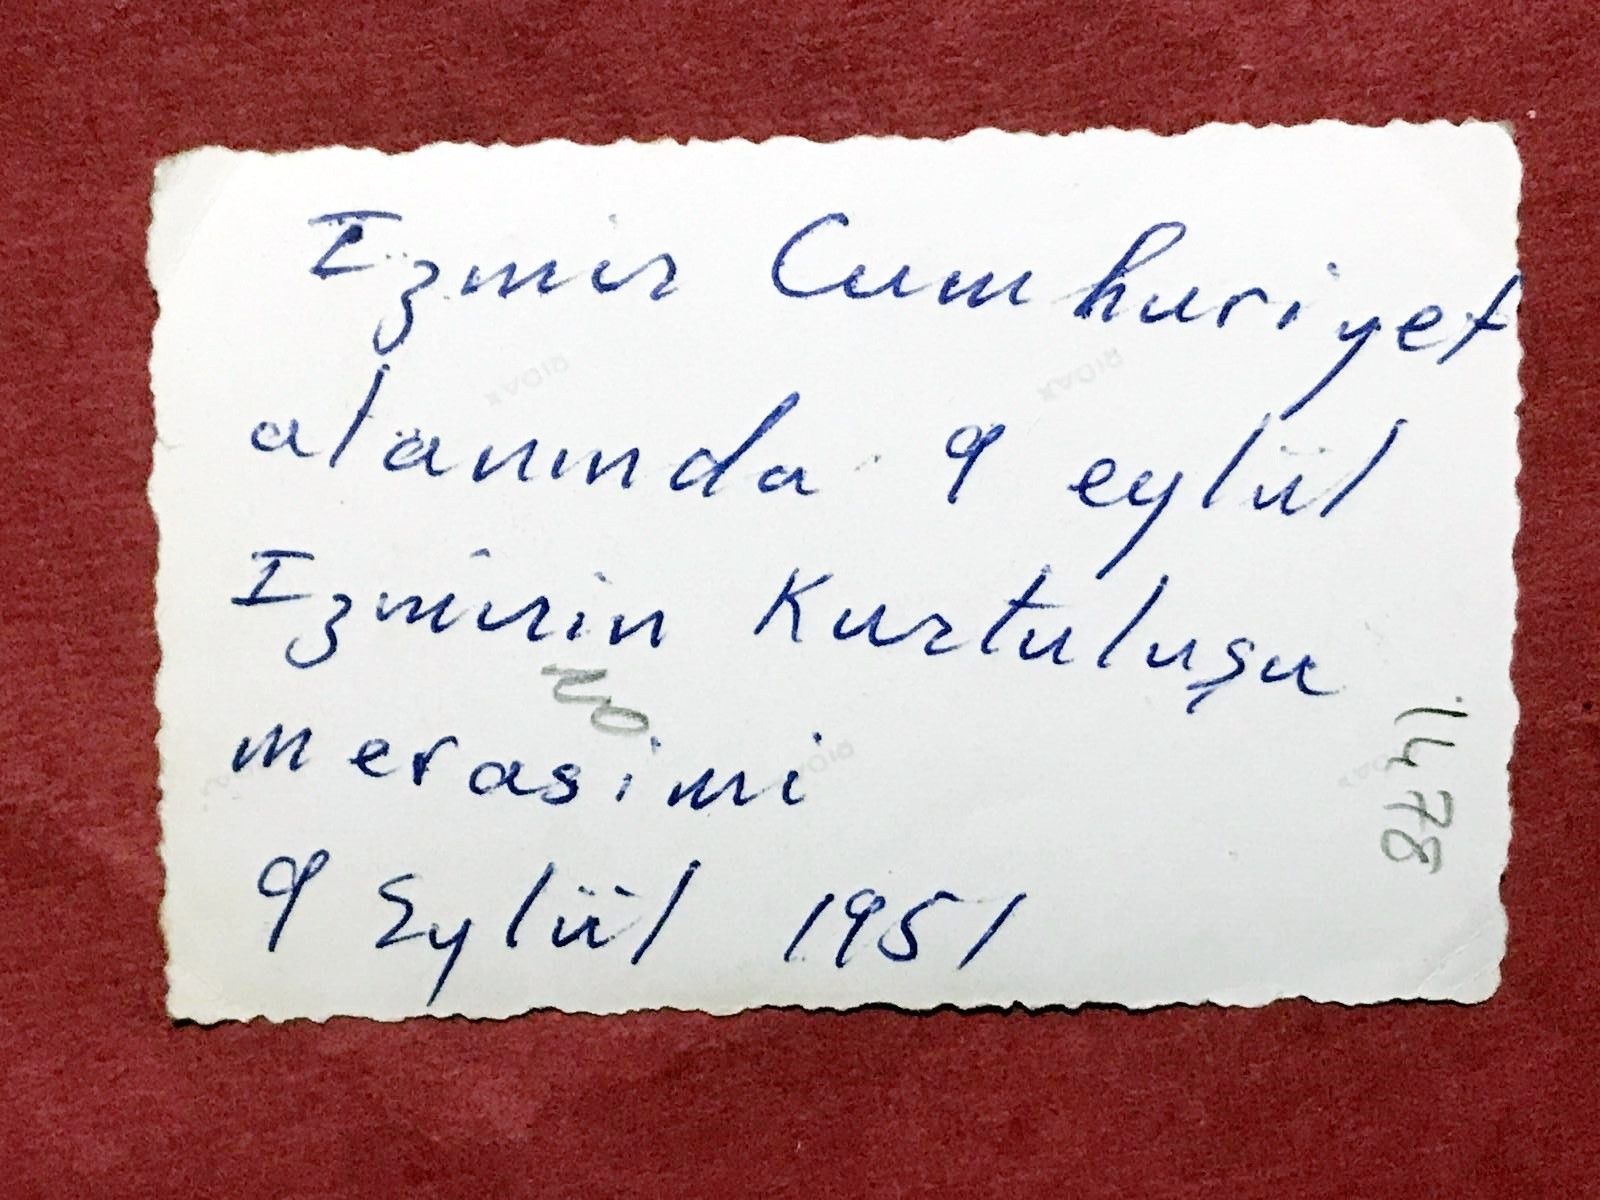 Izmir Cumhuriyet
alanında 9 eylül
Izmirin Kurtuluşu
merasimi
9 Eylül 1951
20
1478